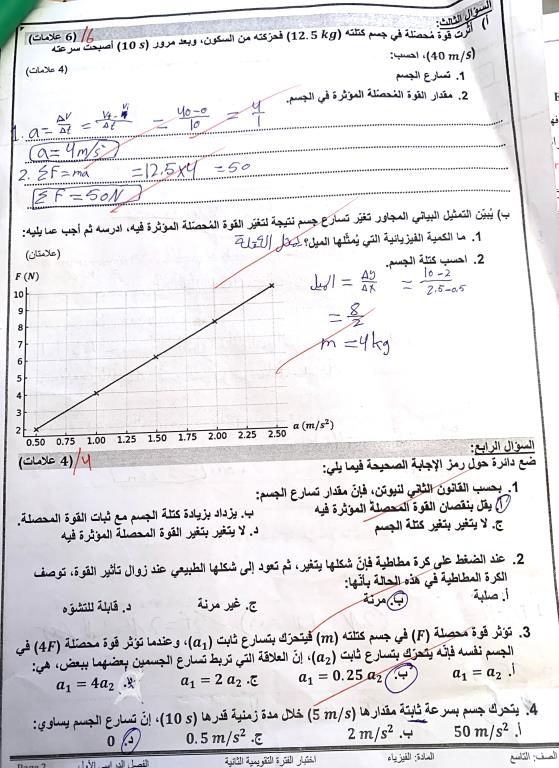 السؤال الثالث:
(6 علامات) 6/
أ) أثرت قوة مُحصّلة في جسم كتلته (12.5 kg) فحركته من السكون، وبعد مرور (10 s) أصبحت سرعته
(40 m/s)، احسب:
(4 علامات)
1. تسارع الجسم
2. مقدار القوة المُحصّلة المؤثرة في الجسم.
1. a = Δv/Δt = = 40-0/10 = 4/1
a = 4 m/s²
2. ΣF = ma = 12.5 x 4 = 50
ΣF = 50N
ب) يُبيّن التمثيل البياني المجاور تغيّر تسارع جسم نتيجة لتغيّر القوة المُحصّلة المؤثرة فيه، ادرسه ثم أجب عما يليه:
1. ما الكمية الفيزيائية التي يُمثّلها الميل؟
(علامتان)
2. احسب كتلة الجسم.
الميل = Δy/Δx = 10-2/2.5-0.5
= 8/2
m = 4 kg
F (N)
10
9
8
7
6
5
4
3
2
0.50 0.75 1.00 1.25 1.50 1.75 2.00 2.25 2.50
a (m/s²)
السؤال الرابع:
(4 علامات) 4/
ضع دائرة حول رمز الإجابة الصحيحة فيما يلي:
1. بحسب القانون الثاني لنيوتن، فإنّ مقدار تسارع الجسم:
أ. يقل بنقصان القوة المحصلة المؤثرة فيه ب. يزداد بزيادة كتلة الجسم مع ثبات القوة المحصلة.
ج. لا يتغير بتغير كتلة الجسم د. لا يتغير بتغير القوة المحصلة المؤثرة فيه
2. عند الضغط على كرة مطاطية فإنّ شكلها يتغير، ثم تعود إلى شكلها الطبيعي عند زوال تأثير القوة، توصف
الكرة المطاطية في هذه الحالة بأنّها:
أ. صلبة ب. مرنة ج. غير مرنة د. قابلة للتشوّه
3. تؤثر قوة محصلة (F) في جسم كتلته (m) فيتحرّك بتسارع ثابت (a₁)، وعندما تؤثر قوة محصلة (4F) في
الجسم نفسه فإنّه يتحرّك بتسارع ثابت (a₂)، إنّ العلاقة التي تربط تسارع الجسمين بعضهما ببعض، هي:
أ. a₁ = a₂ ب. a₁ = 0.25 a₂ ج. a₁ = 2 a₂ د. a₁ = 4a₂
4. يتحرك جسم بسرعة ثابتة مقدارها (5 m/s) خلال مدة زمنية قدرها (10 s)، إنّ تسارع الجسم يساوي:
أ. 50 m/s² ب. 2 m/s² ج. 0.5 m/s² د. 0
الصف: التاسع المادة: الفيزياء اختبار الفترة التقويمية الثانية الفصل الدراسي الأول Page 2